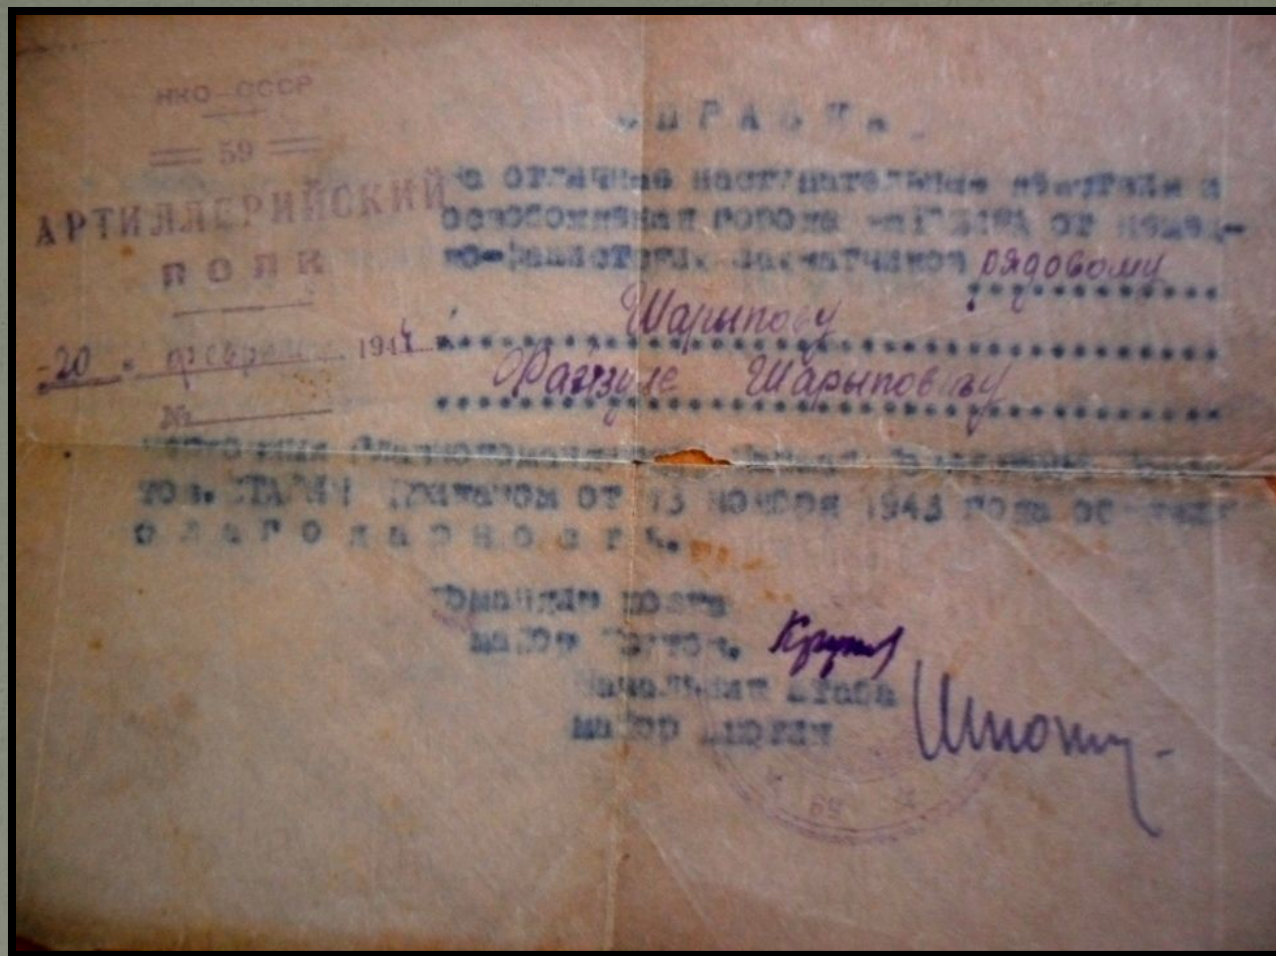 НКО-СССР
59
АРТИЛЛЕРИЙСКИЙ
ПОЛК
"20" февраля 1944 г.
№
СПРАВКА
За отличные наступательные действия и
освобождения города от немец-
ко-фашистских захватчиков рядовому
Шарыпову
Файзуле Шарыповичу
Верховным
тов. СТАЛИН Приказом от 13 ноября 1943 года
благодарность.
Командир полка
майор
Начальник Штаба
майор
59